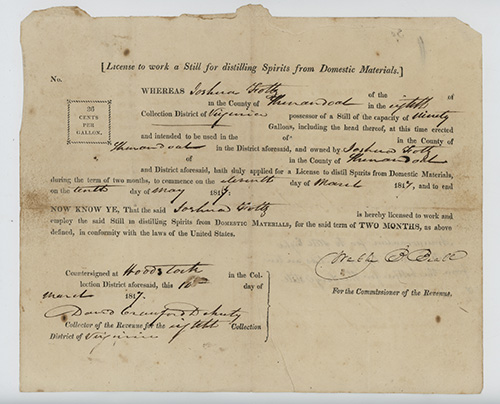 [License to work a Still for distilling Spirits from Domestic Materials.]
No.
WHEREAS Joshua Foltz of the of
in the County of Shenandoah in the eighth
Collection District of Virginia possessor of a Still of the capacity of Ninety
Gallons, including the head thereof, at this time erected
and intended to be used in the of in the County of
Shenandoah and District aforesaid, and owned by Joshua Foltz
of in the County of Shenandoah
and District aforesaid, hath duly applied for a License to distil Spirits from Domestic Materials,
during the term of two months, to commence on the eleventh day of March 1817, and to end
on the tenth day of May 1817.
36
CENTS
PER
GALLON.
NOW KNOW YE, That the said Joshua Foltz is hereby licensed to work and
employ the said Still in distilling Spirits from DOMESTIC MATERIALS, for the said term of TWO MONTHS, as above
defined, in conformity with the laws of the United States.
Countersigned at Woodstock in the Col-
lection District aforesaid, this day of
March 1817.
David Crawford Deputy
Collector of the Revenue for the eighth Collection
District of Virginia
For the Commissioner of the Revenue.